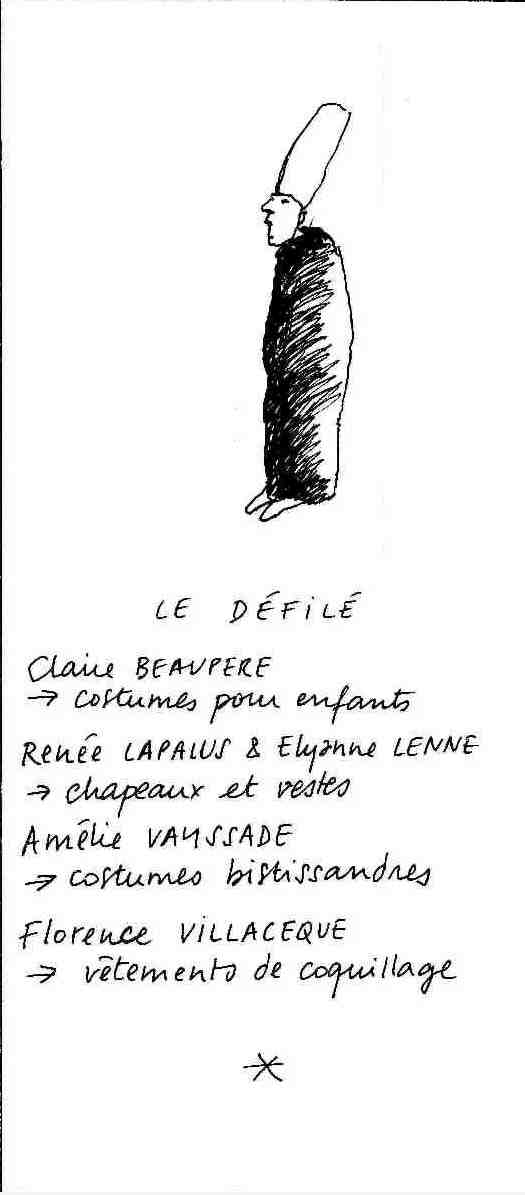 LE DÉFILÉ
Claire BEAUPERE
→ costumes pour enfants
Renée LAPALUS & Elyanne LENNE
→ chapeaux et vestes
Amélie VAYSSADE
→ costumes bistissandres
Florence VILLACEQUE
→ vêtements de coquillage